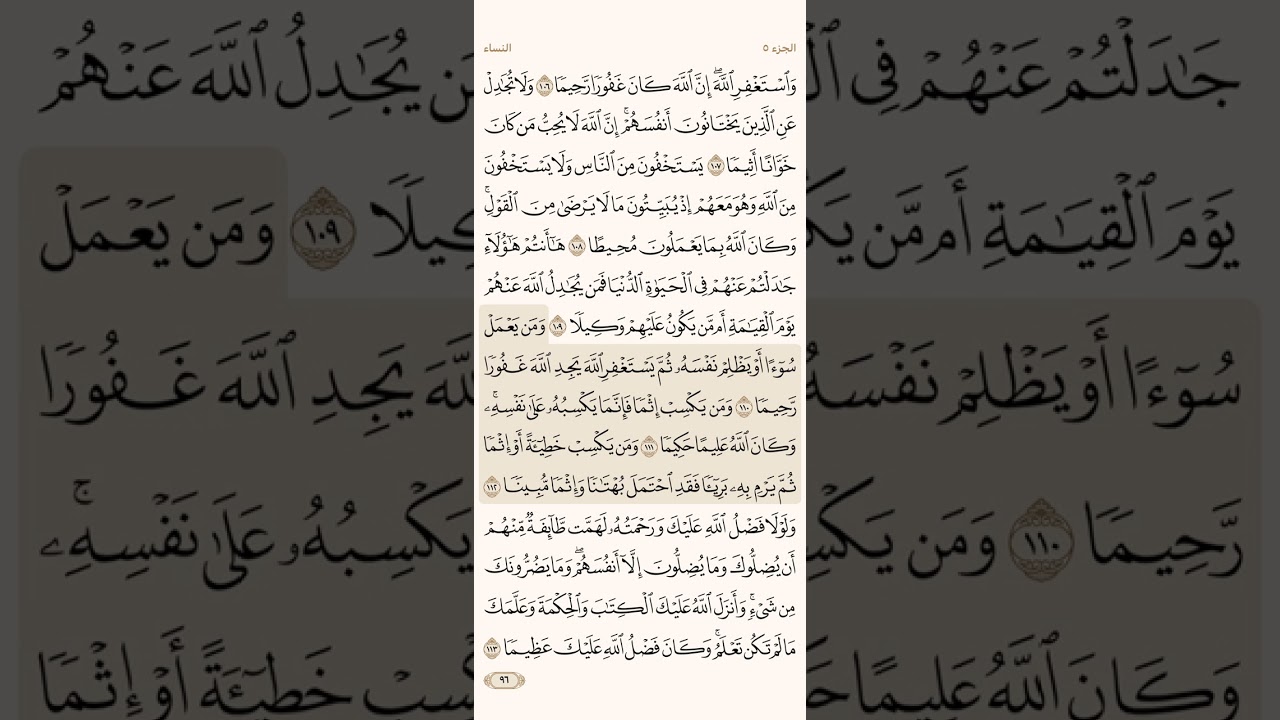 الجزء ٥
النساء
وَٱسْتَغْفِرِ ٱللَّهَۖ إِنَّ ٱللَّهَ كَانَ غَفُورًا رَّحِيمًا ١٠٦ وَلَا تُجَٰدِلْ
عَنِ ٱلَّذِينَ يَخْتَانُونَ أَنفُسَهُمْۚ إِنَّ ٱللَّهَ لَا يُحِبُّ مَن كَانَ
خَوَّانًا أَثِيمًا ١٠٧ يَسْتَخْفُونَ مِنَ ٱلنَّاسِ وَلَا يَسْتَخْفُونَ
مِنَ ٱللَّهِ وَهُوَ مَعَهُمْ إِذْ يُبَيِّتُونَ مَا لَا يَرْضَىٰ مِنَ ٱلْقَوْلِۚ
وَكَانَ ٱللَّهُ بِمَا يَعْمَلُونَ مُحِيطًا ١٠٨ هَٰٓأَنتُمْ هَٰٓؤُلَآءِ
جَٰدَلْتُمْ عَنْهُمْ فِى ٱلْحَيَوٰةِ ٱلدُّنْيَا فَمَن يُجَٰدِلُ ٱللَّهَ عَنْهُمْ
يَوْمَ ٱلْقِيَٰمَةِ أَم مَّن يَكُونُ عَلَيْهِمْ وَكِيلًا ١٠٩ وَمَن يَعْمَلْ
سُوٓءًا أَوْ يَظْلِمْ نَفْسَهُۥ ثُمَّ يَسْتَغْفِرِ ٱللَّهَ يَجِدِ ٱللَّهَ غَفُورًا
رَّحِيمًا ١١٠ وَمَن يَكْسِبْ إِثْمًا فَإِنَّمَا يَكْسِبُهُۥ عَلَىٰ نَفْسِهِۦۚ
وَكَانَ ٱللَّهُ عَلِيمًا حَكِيمًا ١١١ وَمَن يَكْسِبْ خَطِيٓـَٔةً أَوْ إِثْمًا
ثُمَّ يَرْمِ بِهِۦ بَرِيٓـًٔا فَقَدِ ٱحْتَمَلَ بُهْتَٰنًا وَإِثْمًا مُّبِينًا ١١٢
وَلَوْلَا فَضْلُ ٱللَّهِ عَلَيْكَ وَرَحْمَتُهُۥ لَهَمَّت طَّآئِفَةٌ مِّنْهُمْ
أَن يُضِلُّوكَ وَمَا يُضِلُّونَ إِلَّآ أَنفُسَهُمْۖ وَمَا يَضُرُّونَكَ
مِن شَىْءٍۚ وَأَنزَلَ ٱللَّهُ عَلَيْكَ ٱلْكِتَٰبَ وَٱلْحِكْمَةَ وَعَلَّمَكَ
مَا لَمْ تَكُن تَعْلَمُۚ وَكَانَ فَضْلُ ٱللَّهِ عَلَيْكَ عَظِيمًا ١١٣
٩٦